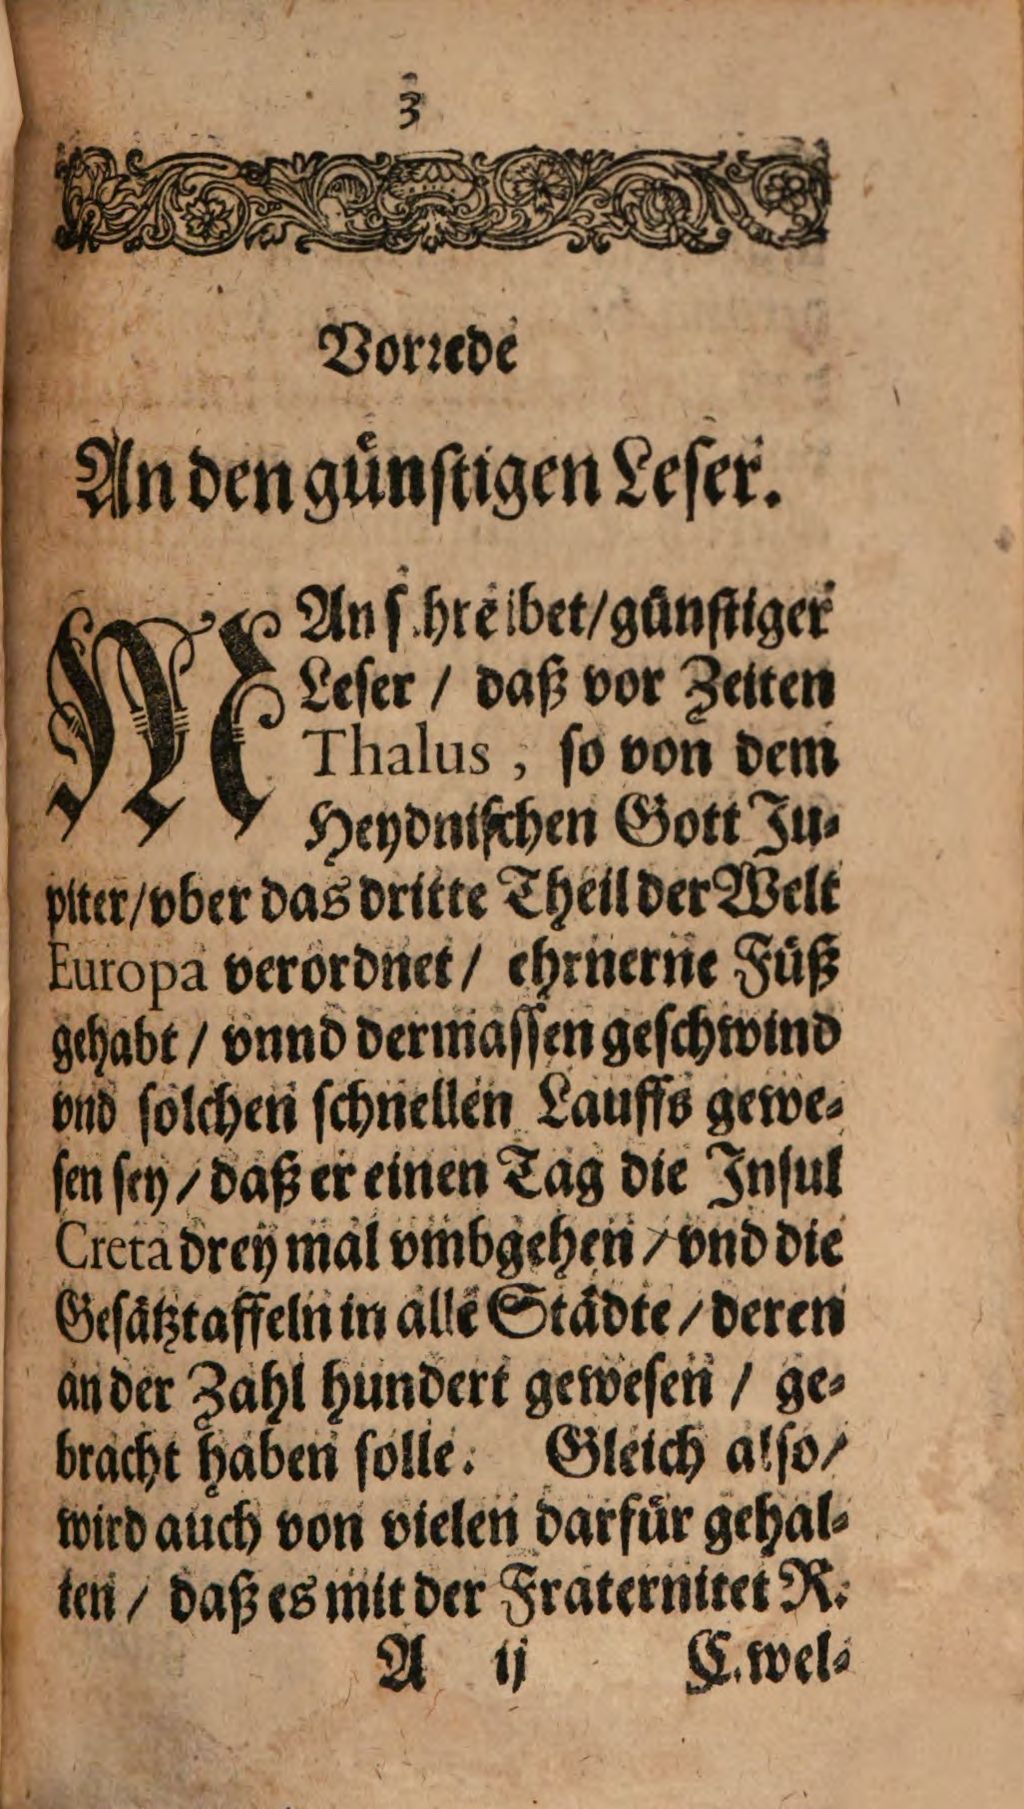 3
Vorrede
An den günstigen Leser.
MAn schreibet/günstiger
Leser / daß vor Zeiten
Thalus , so von dem
Heydnischen Gott Ju-
piter/vber das dritte Theil der Welt
Europa verordnet / ehrnerne Füß
gehabt / vnnd dermassen geschwind
vnd solchen schnellen Lauffs gewe-
sen sey / daß er einen Tag die Insul
Creta drey mal vmbgehen / vnd die
Gesätztaffeln in alle Städte / deren
an der Zahl hundert gewesen / ge-
bracht haben solle. Gleich also/
wird auch von vielen darfür gehal-
ten / daß es mit der Fraternitet R.
A ij C. wel-